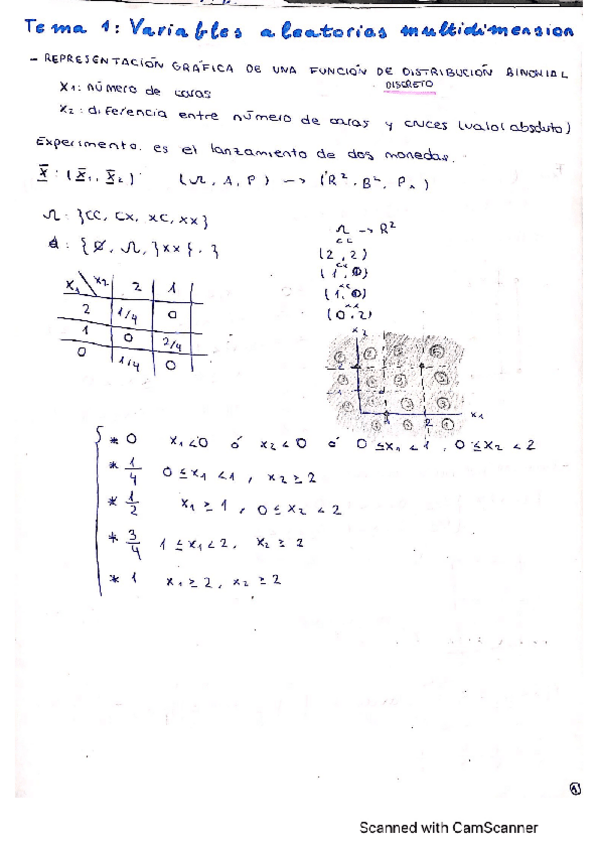 Tema 1: Variables aleatorias multidimension
- REPRESENTACIÓN GRÁFICA DE UNA FUNCIÓN DE DISTRIBUCIÓN BINOMIAL
DISCRETO
X1: número de caras
X2: diferencia entre número de caras y cruces (valor absoluto)
Experimento. es el lanzamiento de dos monedas.
X̄ : (X̄1, X̄2) (Ω, A, P) -> (R², B², Px)
Ω : {CC, CX, XC, XX}
A : {Ø, Ω, {XX}, }
Ω -> R²
(2, 2)
(1, 0)
(1, 0)
(0, 2)
X1 \ X2 2 1
2 1/4 0
1 0 2/4
0 1/4 0
x2
x1
* 0 x1 < 0 ó x2 < 0 ó 0 ≤ x1 < 1, 0 ≤ x2 < 2
* 1/4 0 ≤ x1 < 1, x2 ≥ 2
* 1/2 x1 ≥ 1, 0 ≤ x2 < 2
* 3/4 1 ≤ x1 < 2, x2 ≥ 2
* 1 x1 ≥ 2, x2 ≥ 2
1
Scanned with CamScanner